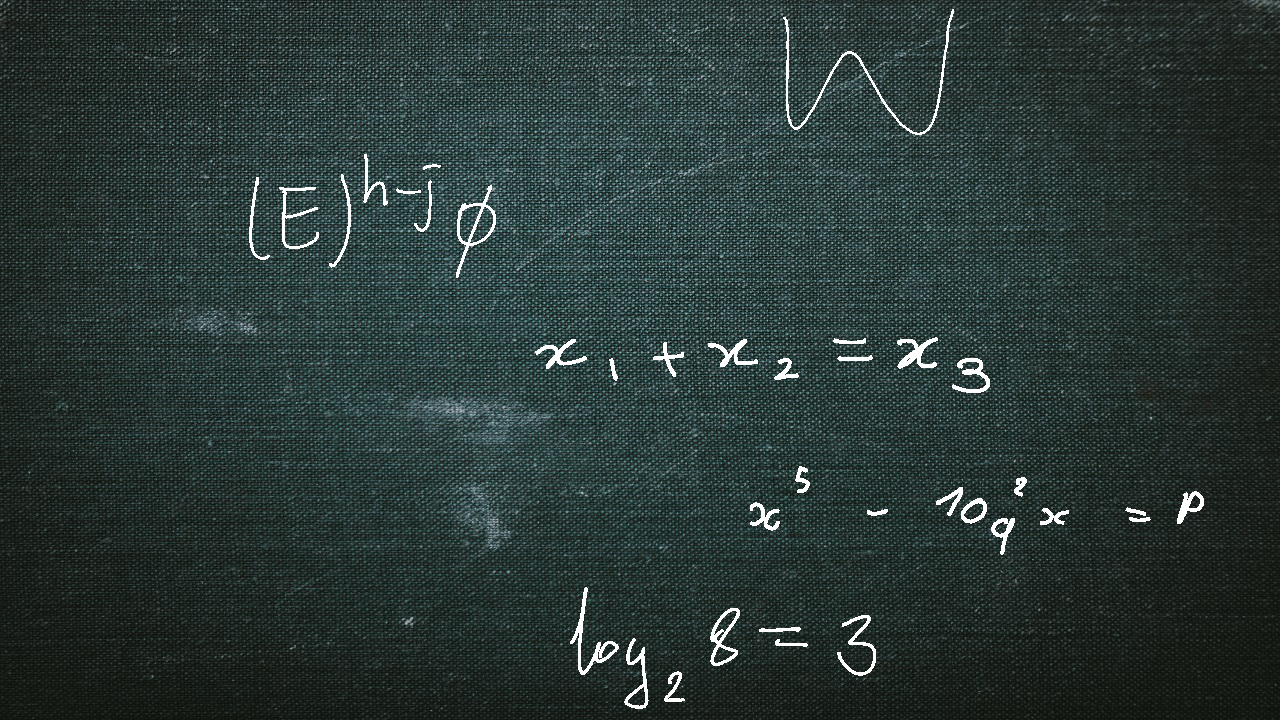 W
(E)^{h-j} ϕ
x_1 + x_2 = x_3
x^5 - 10q^2x = p
log_2 8 = 3